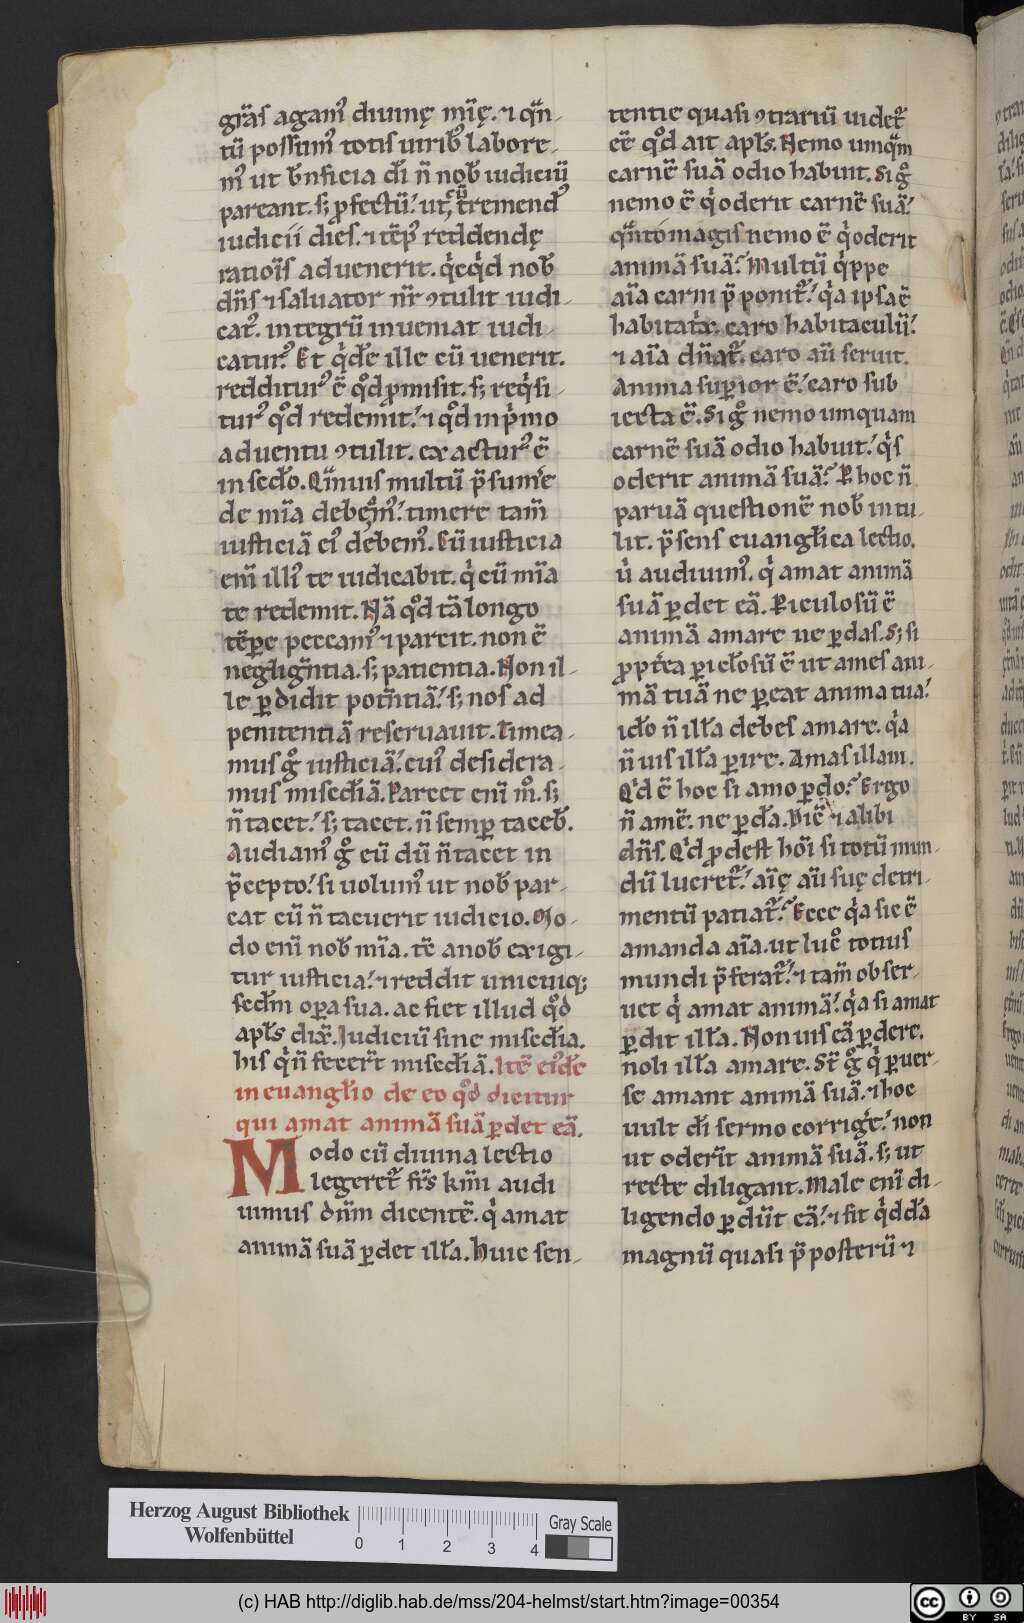 gr̄as agam᷒ diuinę mīę. ⁊ qn̄-
tū possum᷒ totis uirib᷒ labore-
m᷒ ut b̄nficia dī n̄ nob̄ iudiciū
pareant. s; ꝓfectū. ut, cū tremend᷒
iudicii dies. ⁊ tēp᷒ reddendę
ratioīs aduenerit. q̇cq̇d nob̄
dn̄s ⁊ saluator nr̄ ꝯtulit iudi-
cat᷒. integrū inueniat iudi-
catur᷒. Et q̇dē ille cū uenerit.
redditur᷒ ē qd̊ ꝓmisit. s; req̇si-
tur᷒ qd̊ redemit. ⁊ qd̊ in ṗmo
aduentu ꝯtulit. exactur᷒ ē
in scd̄o. Qm̄uis multū p̄sumė
de mīa debem᷒. timere tam̄
iusticiā ei᷒ debem᷒. Cū iusticia
em̄ illi᷒ te iudicabit. q̇ cū mīa
te redemit. Nā qd̊ tā longo
tēꝑe peccam᷒ ⁊ parcit. non ē
neglign̄tia. s; patientia. Non il-
le ꝑdidit potn̄tiā. s; nos ad
penitentiā reseruauit. Timea-
mus g̊ iusticiā. cui᷒ desidera-
mus misc̄diā. Parcet enī m̊. s;
n̄ tacet. s; tacet. n̄ semꝑ taceb̄.
Audiam᷒ g̊ eū dū n̄ tacet in
p̄cepto. si uolum᷒ ut nob̄ par-
cat cū n̄ tacuerit iudicio. Mo-
do enī nob̄ mīa. tē a nob̄ exigi-
tur iusticia. ⁊ reddit unicuiq;
scd̄m oꝑa sua. ac fiet illud qd̊
apl̄s dix̄. Iudiciū sine misc̄dia.
his q̇ n̄ fecer̄t misc̄diā. Itē ei᷒dē
in euangl̄io de eo qd̊ dicitur
qui amat animā suā ꝑdet eā.
Modo cū diuina lectio
legeret᷒ frs̄ km̄i audi
uimus dn̄m dicentē. q̇ amat
animā suā ꝑdet ill̄a. Huic sen-
tentie quasi ꝯtrariū uidet᷒
eē qd̊ ait apl̄s. Nemo umqm̄
carnē suā odio habuit. Si g̊
nemo ē q̇ oderit carnē suā.
qn̄to magis nemo ē q̇ oderit
animā suā. Multū q̇ppe
aīa carni p̄ponit᷒. q̇a ipsa ē
habitat̊x. caro habitaculū.
⁊ aīa dn̄at᷒. caro aū seruit.
Anima suꝑior ē. caro sub
iecta ē. Si g̊ nemo umquam
carnē suā odio habuit. q̇s
oderit animā suā. P hoc n̄
paruā questionē nob̄ in tu-
lit. p̄sens euangl̄ica lectio.
u̇ audiuim᷒. q̇ amat animā
suā ꝑdet eā. Piculosū ē
animā amare ne ꝑdas. S; si
ꝓpt̄ea ꝑicl̄osū ē ut ames ani-
mā tuā ne ꝑeat anima tua.
id̄o n̄ ill̄a debes amare. q̇a
n̄ uis ill̄a ꝑire. Amas illam.
Q̇d ē hoc si amo ꝑdo. Ergo
n̄ amē. ne ꝑd̄a. Dic̄ ⁊ alibi
dn̄s. Q̇d ꝓdest hōi si totū mun-
dū lucret᷒. aīę aū suę detri-
mentū patiat᷒. Ecce q̇a sic ē
amanda aīa. ut luc̊ totius
mundi p̄ferat᷒. ⁊ tam̄ obser-
uet q̇ amat animā. q̇a si amat
ꝑdit ill̄a. Non uis eā ꝑdere.
noli ill̄a amare. St̄ g̊ q̇ ꝑuer-
se amant animā suā. ⁊ hoc
uult dī sermo corrigė. non
ut oder̄it animā suā. s; ut
recte diligant. Male enī di-
ligendo ꝑdūt eā. ⁊ fit q̇dd̄a
magnū quasi p̄posterū ⁊
Herzog August Bibliothek
Wolfenbüttel
0 1 2 3 4
Gray Scale
(c) HAB http://diglib.hab.de/mss/204-helmst/start.htm?image=00354
cc BY SA